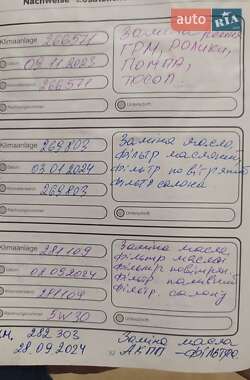 Nachweise
auto
RIA
.com
Klimaanlage 266571
Datum 09.11.2023
266571
Заміна ременя
ГРМ, ролики,
помпа,
тосол
Unterschrift
Klimaanlage 269803
Datum 03.01.2024
269803
Заміна масло,
фільтр масляний,
фільтр повітряний
фільтр салона
Unterschrift
Klimaanlage 281109
Datum 08.09.2024
281109
5W30
Заміна масла,
фільтр масла
фільтр повітрян.
фільтр паливний
фільтр. салону
Unterschrift
282 303
28.09.2024
Заміна масла
АКПП - фільтра